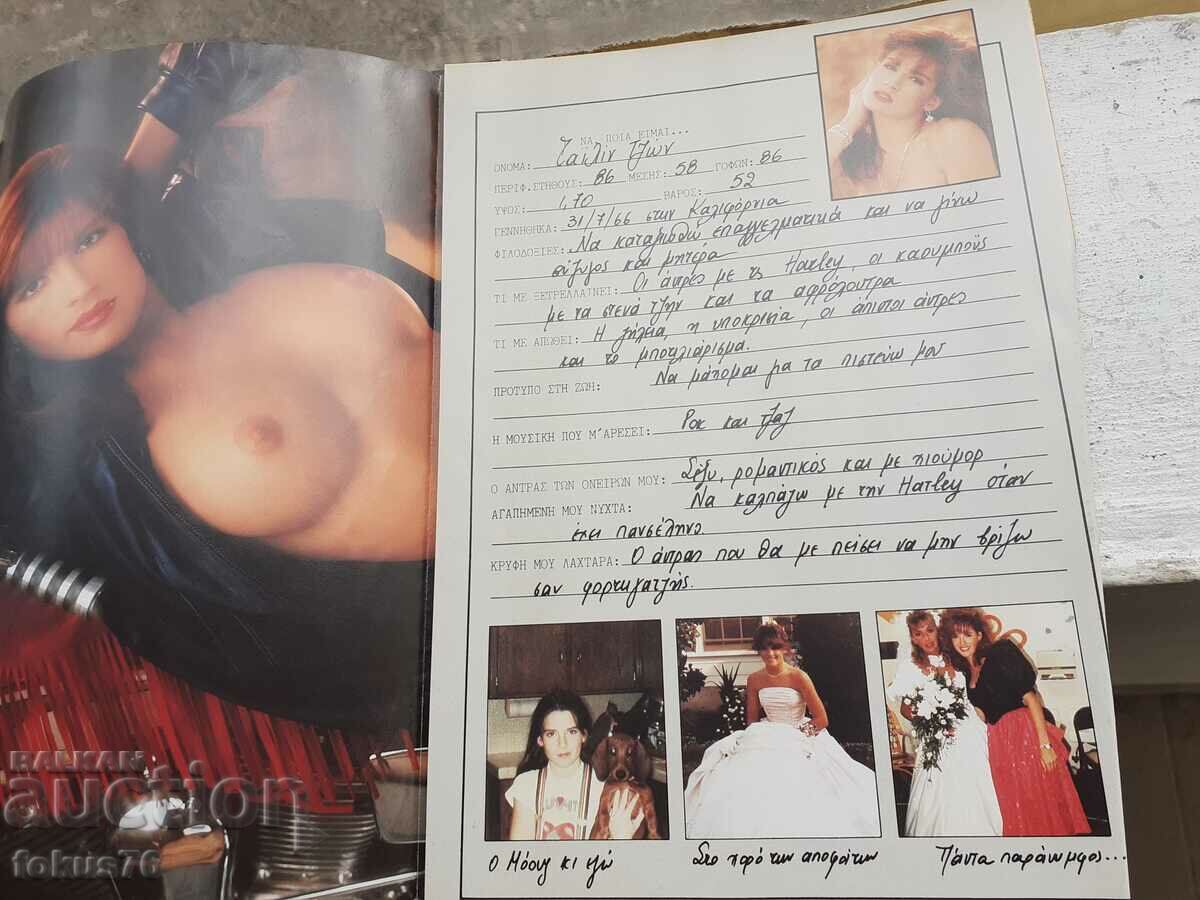 ΝΑ ΠΟΙΑ ΕΙΜΑΙ...
ΟΝΟΜΑ: Τζών
ΠΕΡΙΦ.ΣΤΗΘΟΥΣ: 86 ΜΕΣΗΣ: 58 ΓΟΦΩΝ: 86
ΥΨΟΣ: 1,70 ΒΑΡΟΣ: 52
ΓΕΝΝΗΘΗΚΑ: 31/7/66 στην Καλιφόρνια
ΦΙΛΟΔΟΞΙΕΣ: Να καταξιωθώ επαγγελματικά και να γίνω
σύζυγος και μητέρα
ΤΙ ΜΕ ΞΕΤΡΕΛΛΑΙΝΕΙ: Οι άντρες με τις Harley, οι καουμπόυς
με τα στενά τζην και τα αφρόλουτρα
ΤΙ ΜΕ ΑΠΩΘΕΙ: Η ζήλεια, η υποκρισία, οι άπιστοι άντρες
και το μποτιλιάρισμα.
ΠΡΟΤΥΠΟ ΣΤΗ ΖΩΗ: Να μάχομαι για τα πιστεύω μου
Η ΜΟΥΣΙΚΗ ΠΟΥ Μ'ΑΡΕΣΕΙ: Ροκ και τζαζ
Ο ΑΝΤΡΑΣ ΤΩΝ ΟΝΕΙΡΩΝ ΜΟΥ: Σέξυ, ρομαντικός και με χιούμορ
ΑΓΑΠΗΜΕΝΗ ΜΟΥ ΝΥΧΤΑ: Να καλπάζω με την Harley όταν
έχει πανσέληνο.
ΚΡΥΦΗ ΜΟΥ ΛΑΧΤΑΡΑ: Ο άντρας που θα με πείσει να μην βρίζω
σαν φορτηγατζής.
Ο κι εγώ
Στο χορό των αποφοίτων
Πάντα παράνυμφος...
BALKAN
auction
fokus76